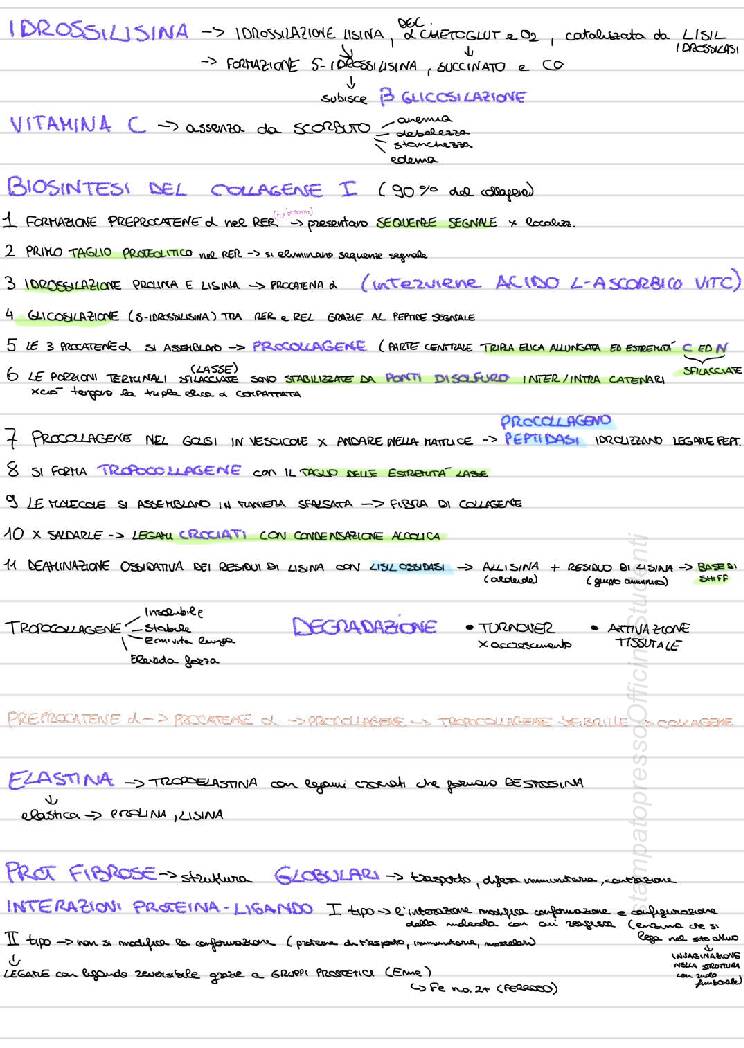 IDROSSILISINA -> IDROSSILAZIONE LISINA, DELL' α CHETOGLUT e O2, catalizzata da LISIL IDROSSILASI
-> FORMAZIONE 5-IDROSSILISINA, SUCCINATO e CO
subisce β GLICOSILAZIONE
VITAMINA C -> assenza da SCORBUTO
anemia
debolezza
stanchezza
edema
BIOSINTESI DEL COLLAGENE I (90% del collagene)
1 FORMAZIONE PREPROCATENE α nel RER -> presentano SEQUENZE SEGNALE x localizz.
2 PRIMO TAGLIO PROTEOLITICO nel RER -> si eliminano sequenze segnale
3 IDROSSILAZIONE PROLINA E LISINA -> PROCATENA α (interviene ACIDO L-ASCORBICO VIT C)
4 GLICOSILAZIONE (5-IDROSSILISINA) TRA RER e REL GRAZIE AL PEPTIDE SEGNALE
5 LE 3 PROCATENE α SI ASSEMBLANO -> PROCOLLAGENE (PARTE CENTRALE TRIPLA ELICA ALLUNGATA ED ESTREMITÀ C ED N
SFILACCIATE
6 LE PORZIONI TERMINALI SFILACCIATE (LASSE) SONO STABILIZZATE DA PONTI DISOLFURO INTER/INTRA CATENARI
xciò tengono la tripla elica a COMPATTATA
7 PROCOLLAGENE NEL GOLGI IN VESCICOLE X ANDARE NELLA MATRICE -> PROCOLLAGENO PEPTIDASI IDROLIZZANO LEGAME PEPT.
8 SI FORMA TROPOCOLLAGENE CON IL TAGLIO DELLE ESTREMITÀ LASSE
9 LE MOLECOLE SI ASSEMBLANO IN MANIERA SFALSATA -> FIBRA DI COLLAGENE
10 X SALDARLE -> LEGAMI CROCIATI CON CONDENSAZIONE ALDOLICA
11 DEAMINAZIONE OSSIDATIVA DEI RESIDUI DI LISINA CON LISIL OSSIDASI -> ALLISINA (aldeide) + RESIDUO DI LISINA (gruppo amminico) -> BASE DI SHIFF
TROPOCOLLAGENE
Insolubile
Stabile
Emivita lunga
Elevata forza
DEGRADAZIONE • TURNOVER x accrescimento • ATTIVAZIONE TISSUTALE
PREPROCATENE α -> PROCATENE α -> PROCOLLAGENE -> TROPOCOLLAGENE -> FIBRILLE -> COLLAGENE
ELASTINA -> TROPOELASTINA con legami crociati che formano DESMOSINA
elastica -> PROLINA, LISINA
PROT FIBROSE -> struttura GLOBULARI -> trasporto, difesa immunitaria, contrazione
INTERAZIONI PROTEINA-LIGANDO I tipo -> l'interazione modifica conformazione e configurazione
della molecola con cui reagisce (enzima che si
lega nel sito attivo
II tipo -> non si modifica la conformazione (proteine di trasporto, immunitarie, muscolari)
INVAGINAZIONE NELLA STRUTTURA con ruolo funzionale)
LEGAME con ligando reversibile grazie a GRUPPI PROSTETICI (Eme)
Fe no. 2+ (FERROSO)
stampatopressoOfficinaStudenti